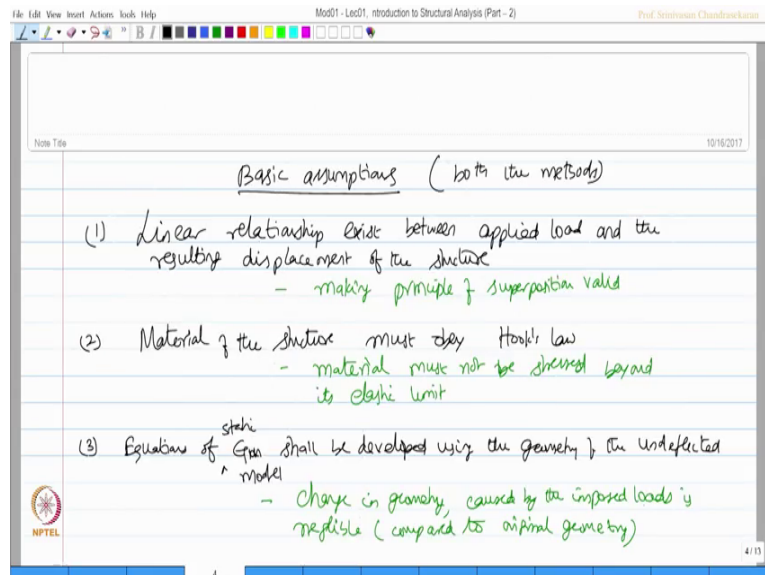 File Edit View Insert Actions Tools Help
Mod01 - Lec01, ntroduction to Structural Analysis (Part – 2)
Prof. Srinivasan Chandrasekaran
B I
Note Title
10/16/2017
Basic assumptions (both the methods)
(1) Linear relationship exist between applied load and the
resulting displacement of the structure
- making principle of superposition valid
(2) Material of the structure must obey Hook's law
- material must not be stressed beyond
its elastic limit
static
(3) Equations of Eqm shall be developed using the geometry of the undeflected
^ model
- change in geometry, caused by the imposed loads is
neglible (compared to original geometry)
NPTEL
4/13